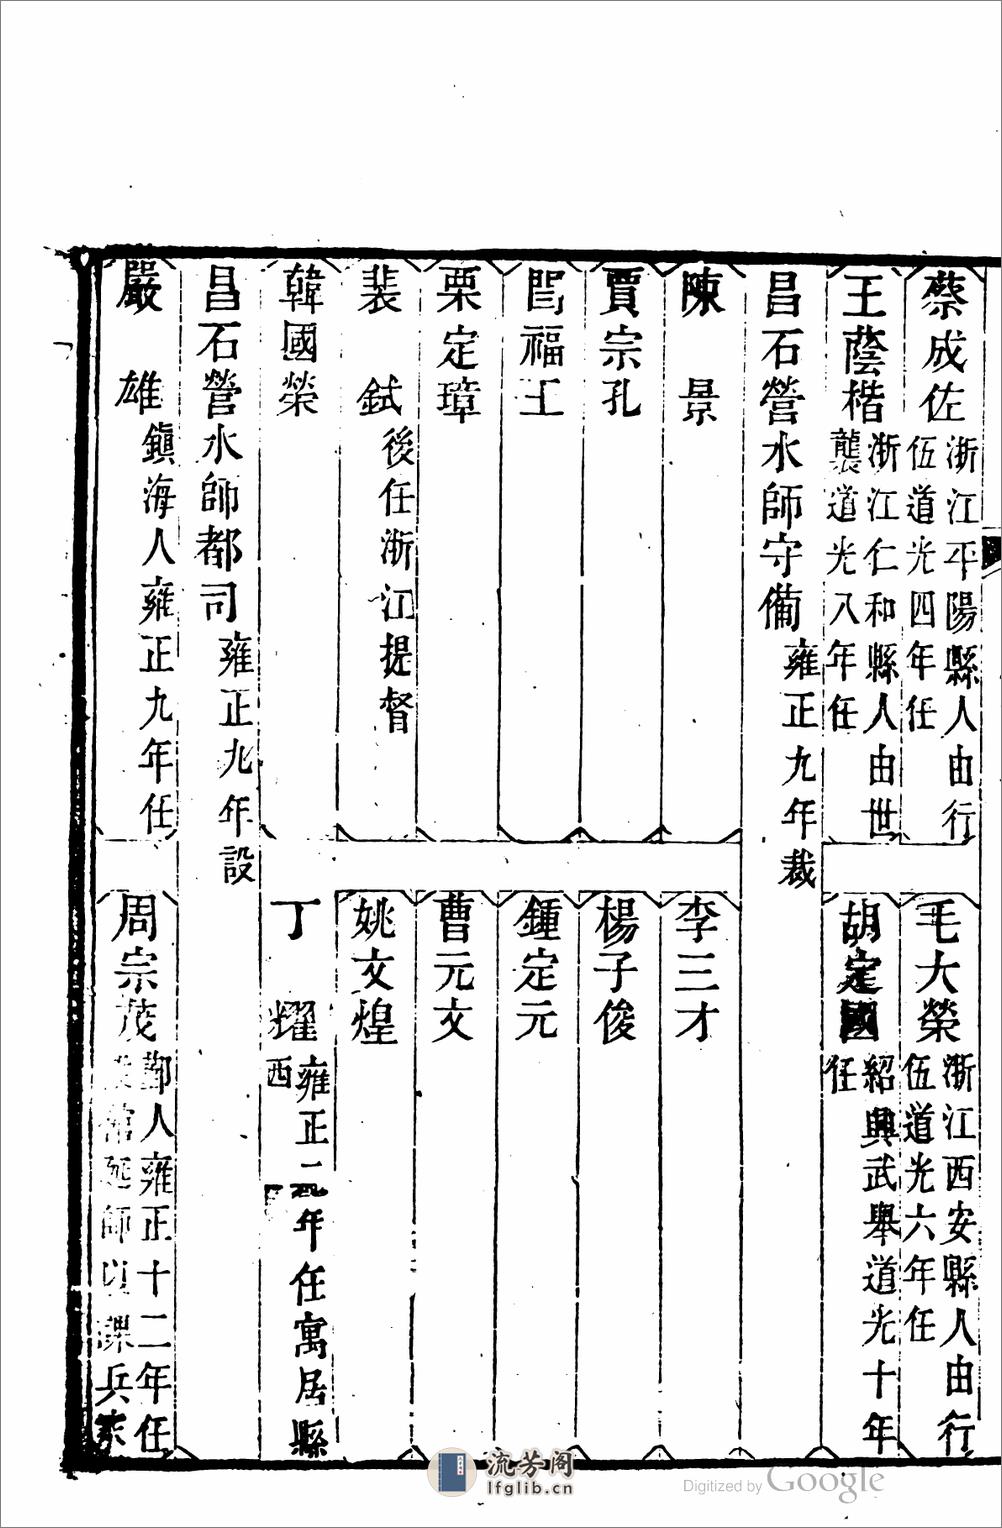 蔡成佐 浙江平陽縣人由行伍道光四年任
毛大榮 浙江西安縣人由行伍道光六年任
王蔭楷 浙江仁和縣人由世襲道光八年任
胡定國 紹興武舉道光十年任
昌石營水師守備 雍正九年裁
陳景
李三才
賈宗孔
楊子俊
閆福王
鍾定元
栗定璋
曹元文
裴鉽 後任浙江提督
姚文煌
韓國榮
丁燿 雍正二年任寓居縣西
昌石營水師都司 雍正九年設
嚴雄 鎮海人雍正九年任
周宗茂 鄞人雍正十二年任 館延師以課兵家
流芳阁
lfglib.cn
Digitized by Google